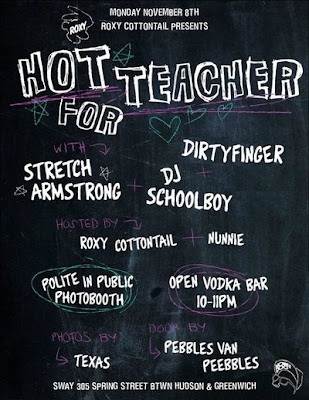 MONDAY NOVEMBER 8TH
ROXY COTTONTAIL PRESENTS
ROXY
HOT
FOR
TEACHER
WITH
STRETCH
ARMSTRONG
+
DIRTYFINGER
+
DJ
SCHOOLBOY
HOSTED BY
ROXY COTTONTAIL + NUNNIE
POLITE IN PUBLIC
PHOTOBOOTH
OPEN VODKA BAR
10-11PM
PHOTOS BY
TEXAS
DOOR BY
PEBBLES VAN
PEEBBLES
SWAY 305 SPRING STREET BTWN HUDSON & GREENWICH